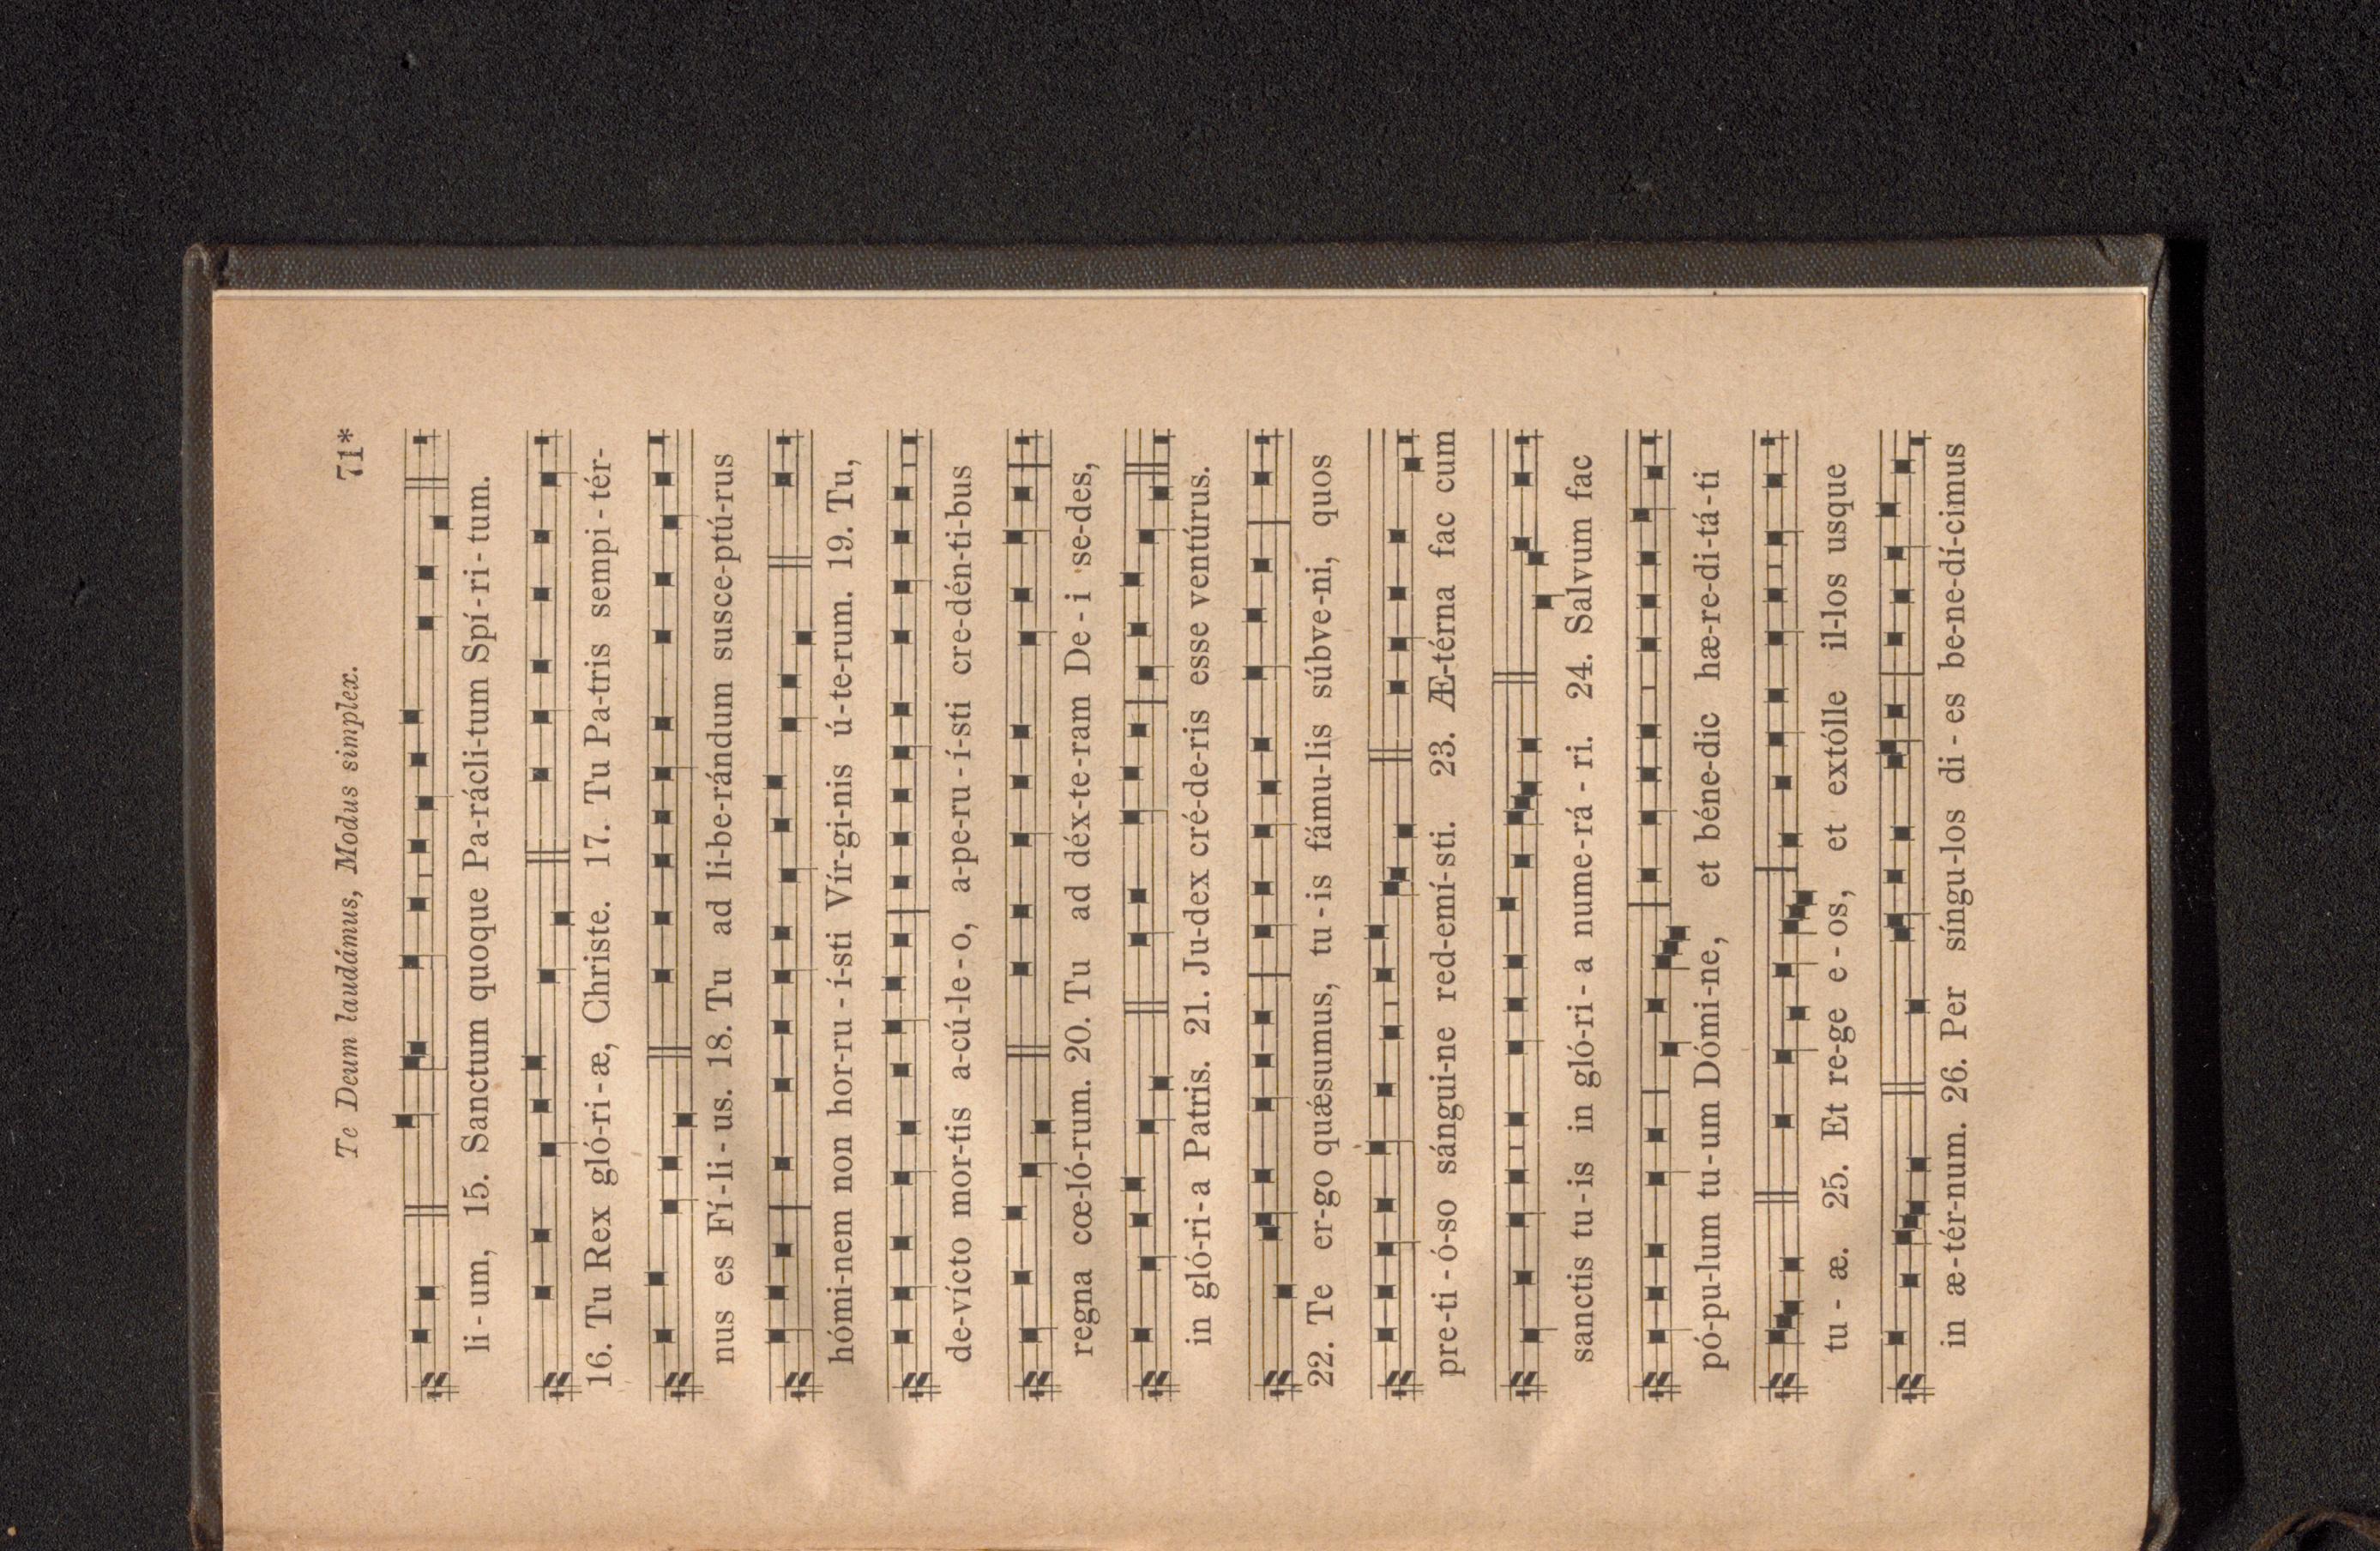 Te Deum laudámus, Modus simplex. 71*
li - um, 15. Sanctum quoque Pa-rácli-tum Spí - ri - tum.
16. Tu Rex gló-ri - æ, Christe. 17. Tu Pa-tris sempi - tér-
nus es Fí - li - us. 18. Tu ad li-be-rándum susce-ptú-rus
hómi-nem non hor-ru - í-sti Vír-gi-nis ú-te-rum. 19. Tu,
de-vícto mor-tis a-cú-le - o, a-pe-ru - í-sti cre-dén-ti-bus
regna cœ-ló-rum. 20. Tu ad déx-te-ram De - i se-des,
in gló-ri - a Patris. 21. Ju-dex cré-de-ris esse ventúrus.
22. Te er-go quǽsumus, tu - is fámu-lis súbve-ni, quos
pre-ti - ó-so sángui-ne red-emí-sti. 23. Æ-térna fac cum
sanctis tu - is in gló-ri - a nume-rá - ri. 24. Salvum fac
pó-pu-lum tu-um Dómi-ne, et béne-dic hæ-re-di-tá-ti
tu - æ. 25. Et re-ge e - os, et extólle il-los usque
in æ-tér-num. 26. Per síngu-los di - es be-ne-dí-cimus